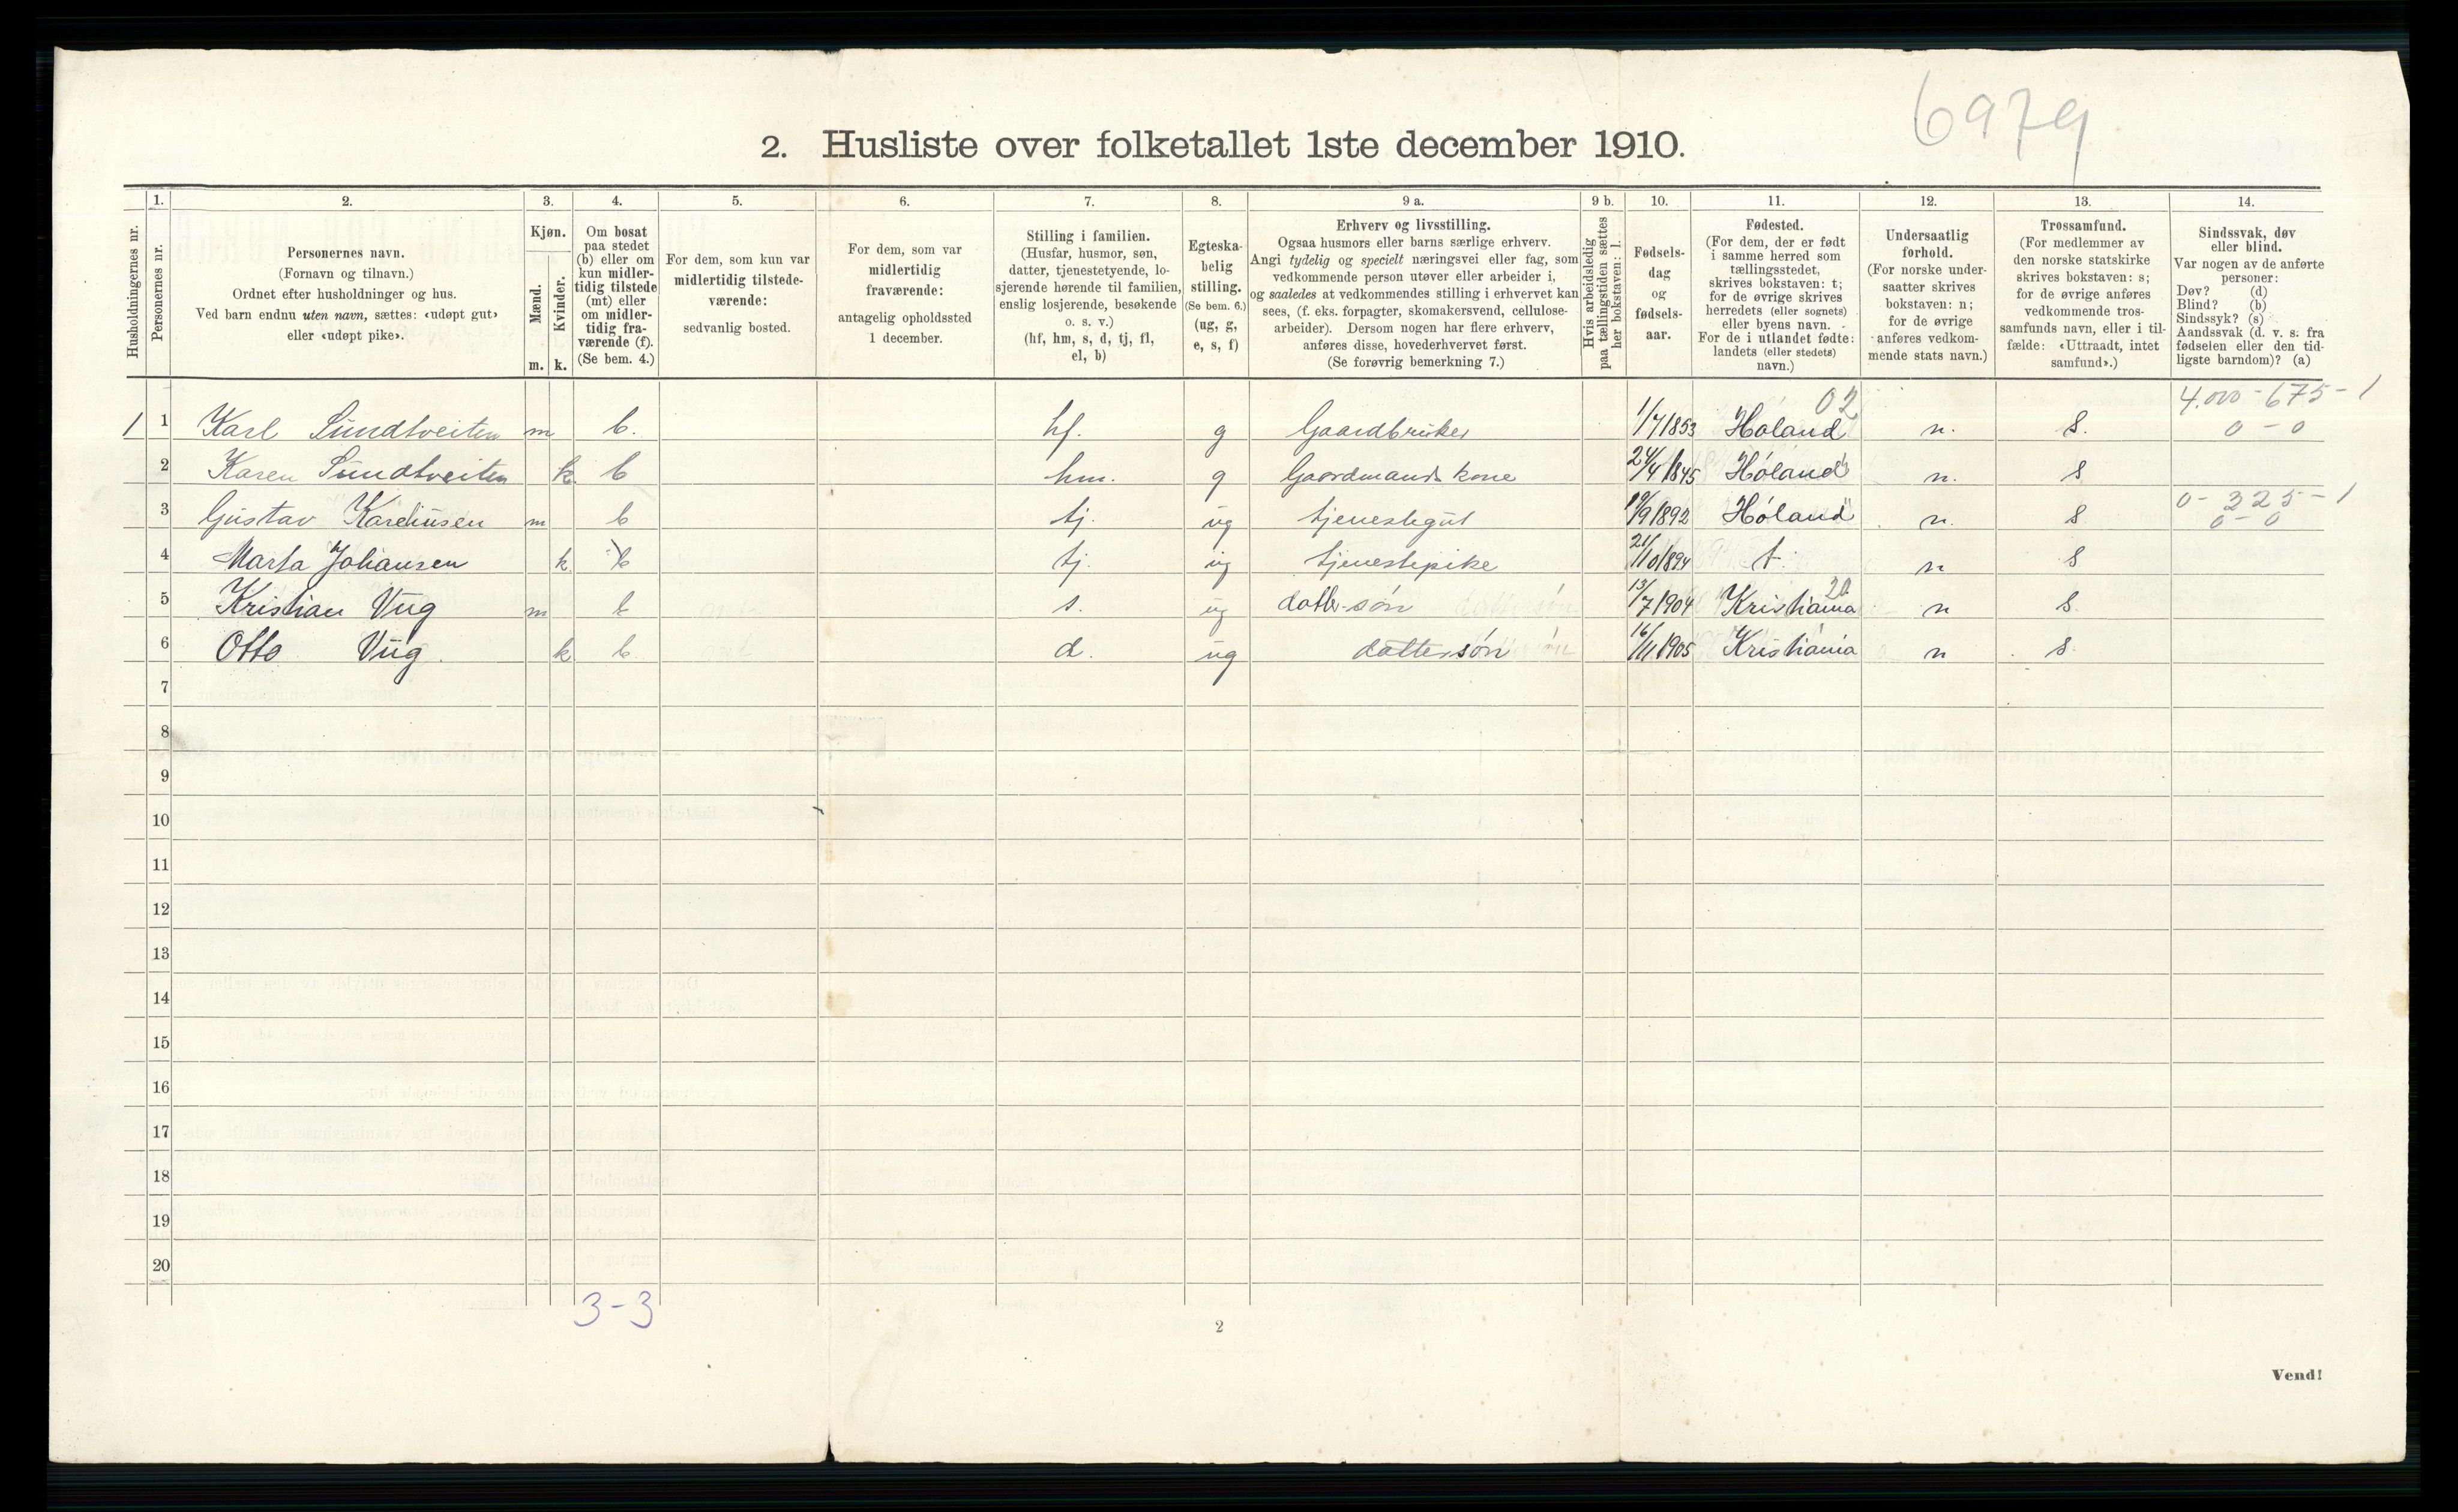 6979
2. Husliste over folketallet 1ste december 1910.
Husholdningernes nr.
1.
Personernes nr.
2.
Personernes navn.
(Fornavn og tilnavn.)
Ordnet efter husholdninger og hus.
Ved barn endnu uten navn, sættes: «udøpt gut»
eller «udøpt pike».
3.
Kjøn.
Mænd.
Kvinder.
m. k.
4.
Om bosat
paa stedet
(b) eller om
kun midler-
tidig tilstede
(mt) eller
om midler-
tidig fra-
værende (f).
(Se bem. 4.)
5.
For dem, som kun var
midlertidig tilstede-
værende:
sedvanlig bosted.
6.
For dem, som var
midlertidig
fraværende:
antagelig opholdssted
1 december.
7.
Stilling i familien.
(Husfar, husmor, søn,
datter, tjenestetyende, lo-
sjerende hørende til familien,
enslig losjerende, besøkende
o. s. v.)
(hf, hm, s, d, tj, fl,
el, b)
8.
Egteska-
belig
stilling.
(Se bem. 6.)
(ug, g,
e, s, f)
9 a.
Erhverv og livsstilling.
Ogsaa husmors eller barns særlige erhverv.
Angi tydelig og specielt næringsvei eller fag, som
vedkommende person utøver eller arbeider i,
og saaledes at vedkommendes stilling i erhvervet kan
sees, (f. eks. forpagter, skomakersvend, cellulose-
arbeider). Dersom nogen har flere erhverv,
anføres disse, hovederhvervet først.
(Se forøvrig bemerkning 7.)
9 b.
Hvis arbeidsledig
paa tællingstiden sættes
her bokstaven: l.
10.
Fødsels-
dag
og
fødsels-
aar.
11.
Fødested.
(For dem, der er født
i samme herred som
tællingsstedet,
skrives bokstaven: t;
for de øvrige skrives
herredets (eller sognets)
eller byens navn.
For de i utlandet fødte:
landets (eller stedets)
navn.)
12.
Undersaatlig
forhold.
(For norske under-
saatter skrives
bokstaven: n;
for de øvrige
anføres vedkom-
mende stats navn.)
13.
Trossamfund.
(For medlemmer av
den norske statskirke
skrives bokstaven: s;
for de øvrige anføres
vedkommende tros-
samfunds navn, eller i til-
fælde: «Uttraadt, intet
samfund».)
14.
Sindssvak, døv
eller blind.
Var nogen av de anførte
personer:
Døv? (d)
Blind? (b)
Sindssyk? (s)
Aandssvak (d. v. s. fra
fødselen eller den tid-
ligste barndom)? (a)
02 4.000 - 675 - 1
1 1 Karl Sundtveiten m b. hf. g Gaardbruker 1/7 1853 Høland n. s. 0 - 0
2 Karen Sundtveiten k b hm. g Gaardmands kone 24/4 1845 Høland n. s
0 - 325 - 1
3 Gustav Kareliusen m b tj. ug tjenestegut 19/9 1892 Høland n. s 0 - 0
4 Marta Johansen k b tj. ug tjenestepike 21/10 1894 t. n s
20
5 Kristian Vüg m b s. ug datter-søn 13/7 1904 Kristiania n s.
6 Otto Vüg. k b d. ug dattersøn 16/11 1905 Kristiania n s.
7
8
9
10
11
12
13
14
15
16
17
18
19
20
3-3
2
Vend!